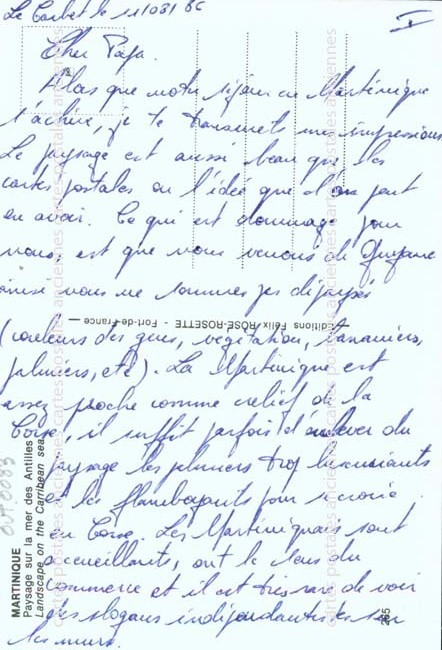 Le Carbet le 11/03/86
I
Cher Papa.
Alors que notre séjour en Martinique
s'achève, je te transmets mes impressions
Le paysage est aussi beau que les
cartes postales ou l'idée que l'on peut
en avoir. Ce qui est dommage pour
nous, est que nous venons de Guyane
ainsi nous ne sommes pas dépaysés
(couleurs des gens, végétation, bananiers,
palmiers, etc). La Martinique est
assez proche comme relief de la
Corse, il suffit parfois d'enlever du
paysage les palmiers trop luxuriants
et les flamboyants pour se croire
en Corse. Les Martiniquais sont
accueillants, ont le sens du
commerce et il est très rare de voir
des slogans indépendantistes sur
les murs.
Editions Félix ROSE-ROSETTE - Fort-de-France
MARTINIQUE
Paysage sur la mer des Antilles
Landscape on the Carribean sea
265
cartes postales anciennes